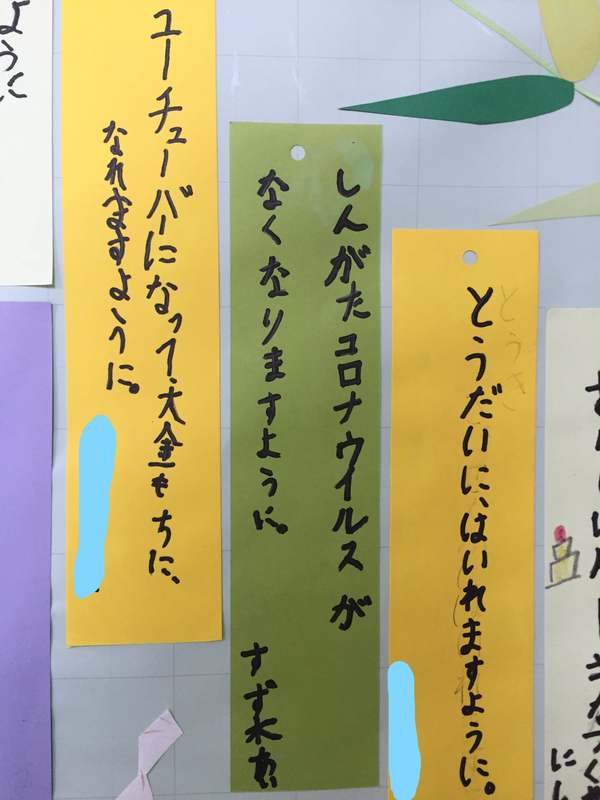 とうだいに、はいれますように。
しんがたコロナウイルスが
なくなりますように。
すず木
ユーチューバーになって大金もちに、
なれますように。
ように